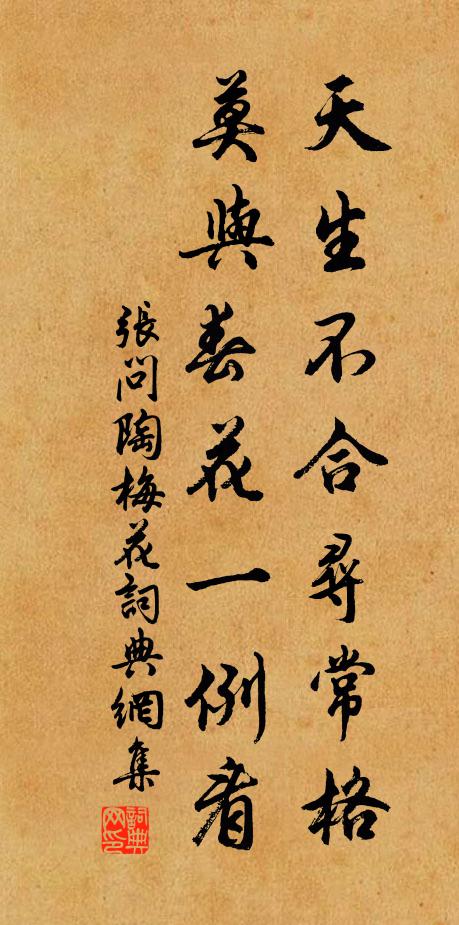 天生不合尋常格
莫與春花一例看
張問陶梅花詞典網集
詞典网印